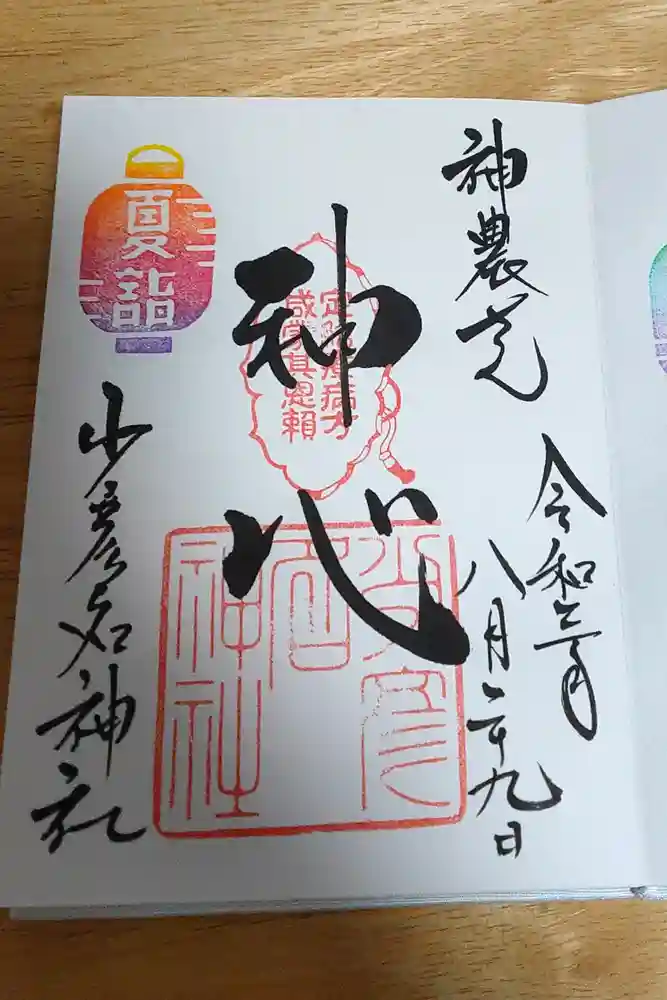 夏詣
神農
令和三年
八月二十九日
神
定其療病方
咸蒙其恩頼
少彦
名
神社
少彦名神社